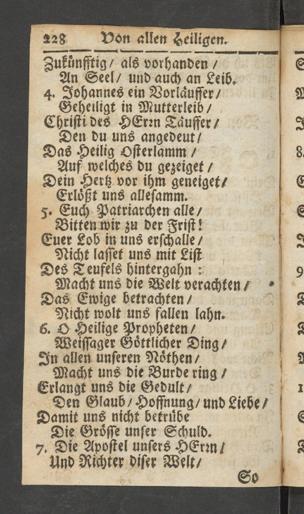 228 Von allen Heiligen.
Zukünfftig / als vorhanden /
An Seel / und auch an Leib.
4. Johannes ein Vorläuffer /
Geheiligt in Mutterleib /
Christi des HErrn Täuffer /
Den du uns angedeut /
Das Heilig Osterlamm /
Auf welches du gezeiget /
Dein Hertz vor ihm geneiget /
Erlößt uns allesamm.
5. Euch Patriarchen alle /
Bitten wir zu der Frist!
Euer Lob in uns erschalle /
Nicht lasset uns mit List
Des Teufels hintergahn :
Macht uns die Welt verachten /
Das Ewige betrachten /
Nicht wolt uns fallen lahn.
6. O Heilige Propheten /
Weissager Göttlicher Ding /
In allen unseren Nöthen /
Macht uns die Burde ring /
Erlangt uns die Gedult /
Den Glaub / Hoffnung / und Liebe /
Damit uns nicht betrübe
Die Grösse unser Schuld.
7. Die Apostel unsers HErrn /
Und Richter diser Welt /
So